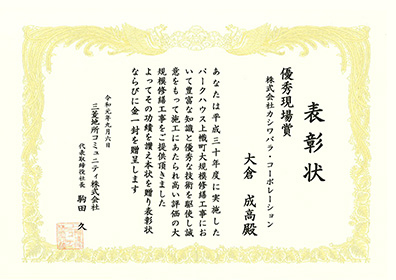 表彰状
優秀現場賞
株式会社カシワバラ・コーポレーション
大倉 成高殿
あなたは平成三十年度に実施した
パークハウス上幟町大規模修繕工事にお
いて豊富な知識と優秀な技術を駆使し誠
意をもって施工にあたられ高い評価の大
規模修繕工事をご提供頂きました
よってその功績を讃え本状を贈り表彰状
ならびに金一封を贈呈します
令和元年九月六日
三菱地所コミュニティ株式会社
代表取締役社長 駒田 久